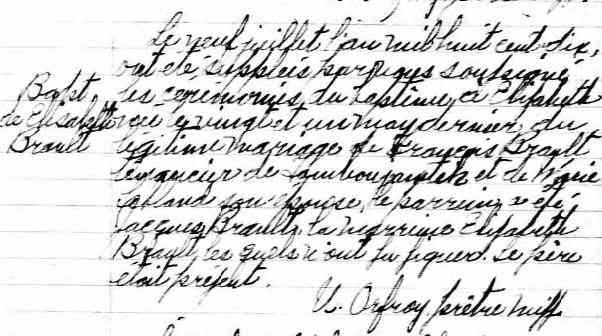 Le neuf juillet l'an mil huit cent dix,
ont été supplées par nous soussigné,
Bapt
les cérémonies du baptême à Elizabeth
de Elisabeth
née le vingt et un may dernier, du
Brault
légitime mariage de François Brault
de et de Marie
son épouse, le parrein a été
Jacques Brault, la marreine Elizabeth
Brault, les quels n'ont su signer. Le père
étoit présent.
U. Orfroy, prêtre miss